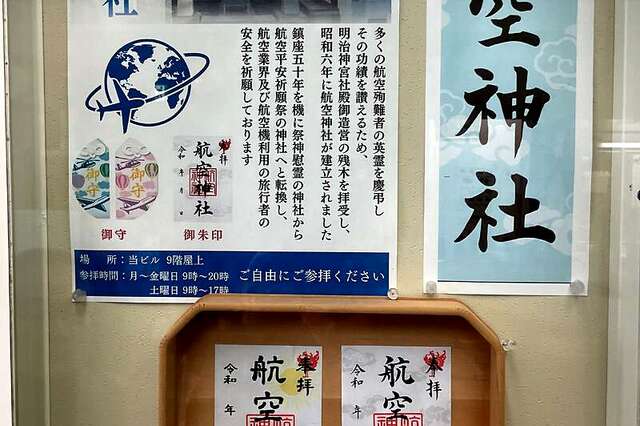 社
多くの航空殉難者の英霊を慶弔し
その功績を讃えるため、
明治神宮社殿御造営の残木を拝受し、
昭和六年に航空神社が建立されました
鎮座五十年を機に祭神慰霊の神社から
航空平安祈願祭の神社へと転換し、
航空業界及び航空機利用の旅行者の
安全を祈願しております
御守
御守
奉拝
航空神社
令和 年 月 日
御守
御朱印
場 所：当ビル 9階屋上
参拝時間：月～金曜日 9時～20時
土曜日 9時～17時
ご自由にご参拝ください
空神社
奉拝
航空
令和 年
奉拝
航空
令和 年